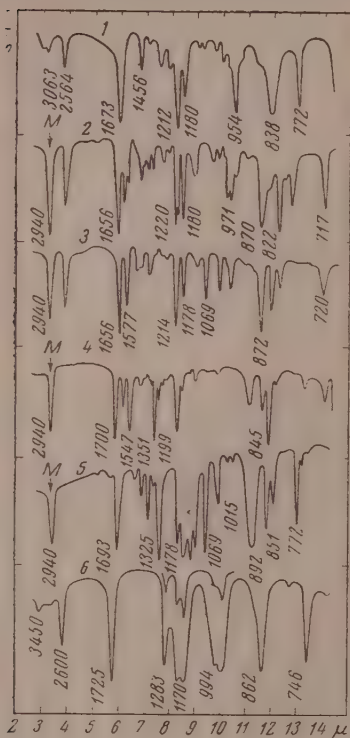 1
3063
2564
1673
1456
1212
1180
954
838
772
M
2
2940
1656
1220
1180
971
870
822
717
3
2940
1656
1577
1214
1178
1069
872
720
M
4
2940
1700
1547
1351
1199
845
M
5
2940
1693
1325
1178
1069
1015
892
851
772
6
3450
2600
1725
1283
1170
994
862
746
2 3 4 5 6 7 8 9 10 11 12 13 14 μ